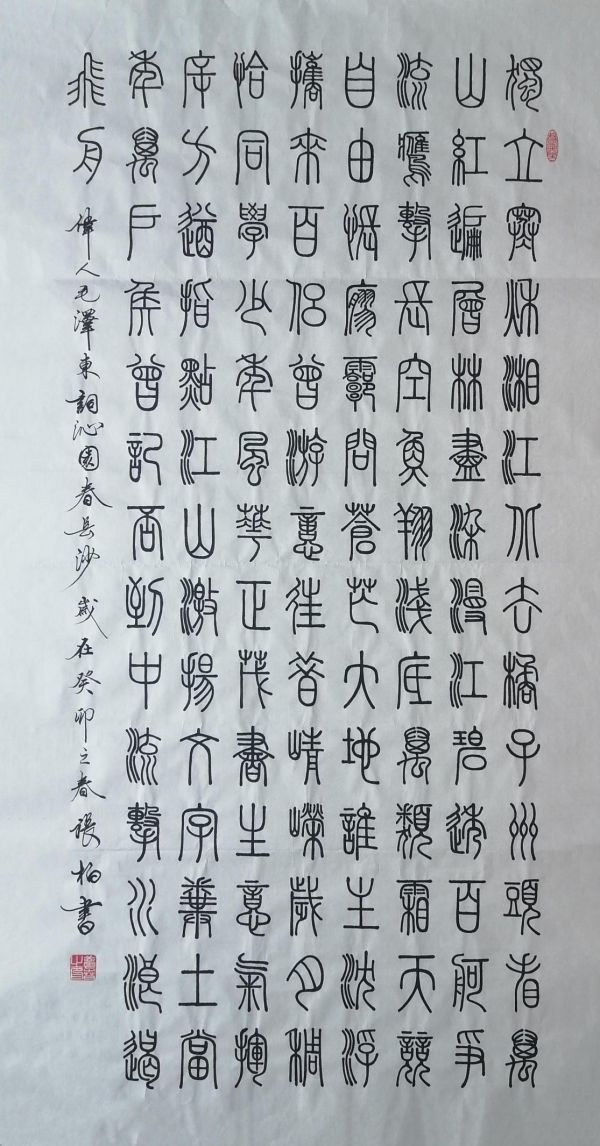 獨立寒秋湘江北去橘子州頭看萬
山紅遍層林盡染漫江碧透百舸爭
流鷹擊長空魚翔淺底萬類霜天競
自由悵廖廓問蒼茫大地誰主沈浮
攜來百侶曾游憶往昔崢嶸歲月稠
恰同學少年風華正茂書生意氣揮
斥方遒指點江山激揚文字糞土當
年萬戶侯曾記否到中流擊水浪遏
飛舟 偉人毛澤東詞沁園春長沙 歲在癸卯之春 張柏書